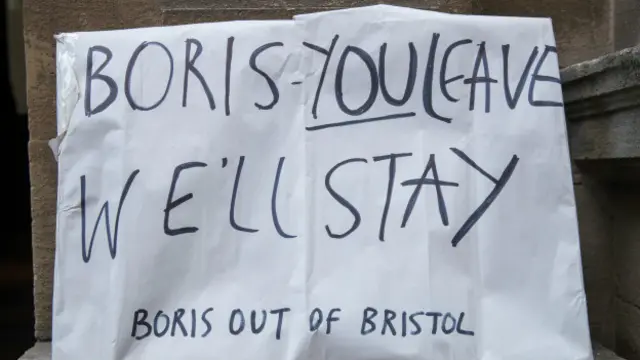 BORIS-YOU LEAVE
WE'LL STAY
BORIS OUT OF BRISTOL